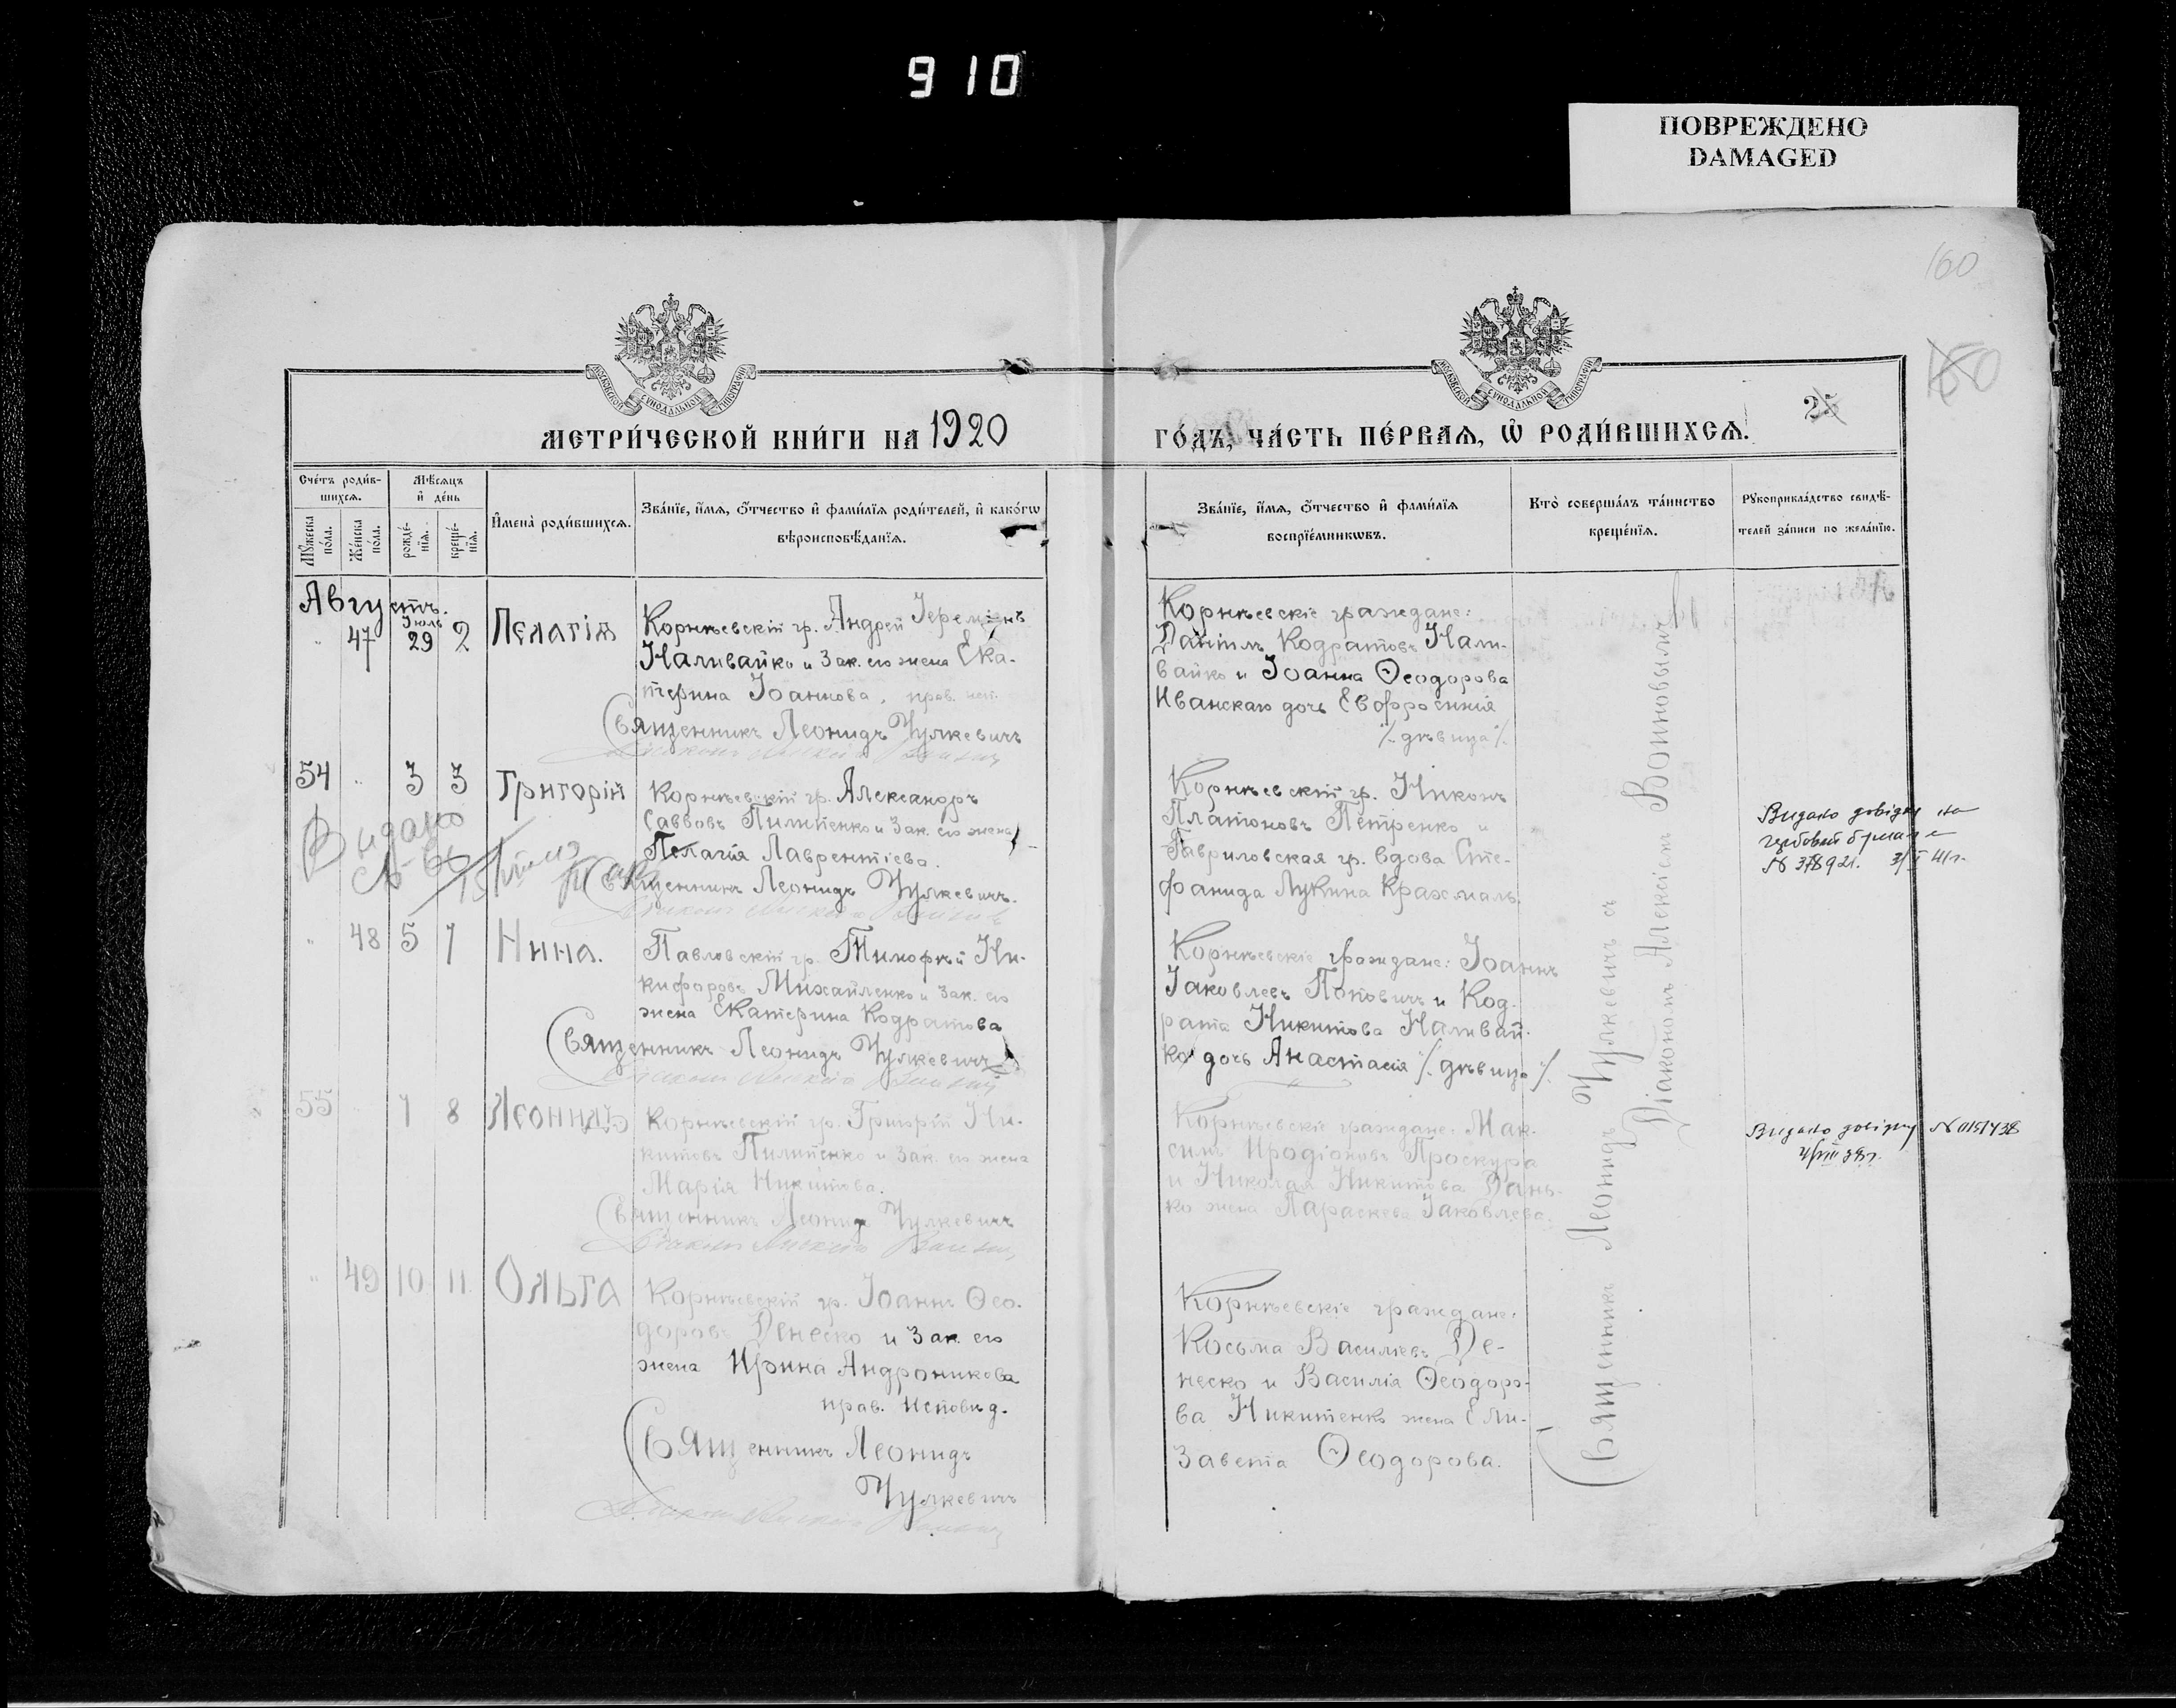 910
ПОВРЕЖДЕНО
DAMAGED
160
160
25
МЕТРИ́ЧЕСКОЙ КНИ́ГИ НА 1920
ГО́ДЪ, ЧА́СТЬ ПЕ́РВАѦ, Ѽ РОДИ́ВШИХСѦ.
Сче́тъ роди́в-
шихсѧ.
Мѣ́сѧцъ
и҆ де́нь
Мꙋ́жеска по́ла.
Же́нска по́ла.
рожде́-
нїѧ.
креще́-
нїѧ.
И҆мена̀ роди́вшихсѧ.
Зва́нїе, и҆́мѧ, ѻ҆́тчество и҆ фами́лїѧ роди́телей, и҆ како́гѡ
вѣроисповѣ́данїѧ.
Зва́нїе, и҆́мѧ, ѻ҆́тчество и҆ фами́лїѧ
воспрїе́мникѡвъ.
Кто̀ соверша́лъ та́инство
креще́нїѧ.
Рꙋкоприкла́дство свидѣ́-
телей за́писи по жела́нїю.
Августъ.
Іюль
47 29 2 Пелагія
Корнѣевскій гр. Андрей Іереміинъ
Наливайко и зак. его жена Ека-
терина Іоаннова, прав. исп.
Священникъ Леонидъ Чулкевичъ
Корнѣевскіе граждане:
Даніилъ Кодратовъ Нали-
вайко и Іоанна Ѳеодорова
Иванскаго дочь Евфросинія
/. дѣвица /.
54 3 3 Григорій
Корнѣевскій гр. Александръ
Саввовъ Пилипенко и зак. его жена
Пелагія Лаврентіева.
Священникъ Леонидъ Чулкевичъ.
Видано
Корнѣевскій гр. Никонъ
Платоновъ Петренко и
Гавриловская гр. вдова Сте-
фанида Лукина Крахмаль.
Видано довідку на
гербовой бумаге
N 378921. 3/I 41г.
48 5 7 Нина.
Павловскій гр. Тимофей Ни-
кифоровъ Михайленко и зак. его
жена Екатерина Кодратова
Священникъ Леонидъ Чулкевичъ
Корнѣевскіе граждане: Іоаннъ
Іаковлевъ Попович и Код-
рата Никитова Наливай-
ко дочь Анастасія /. дѣвица /.
55 7 8 Леонидъ
Корнѣевскій гр. Григорій Ни-
китовъ Пилипенко и зак. его жена
Марія Никитова.
Священникъ Леонидъ Чулкевичъ
Корнѣевскіе граждане: Мак-
симъ Иродіоновъ Проскура
и Николая Никитова Вань-
ко жена Параскева Іаковлева.
Видано довідку N 0151438
49 10 11 Ольга
Корнѣевскій гр. Іоаннъ Ѳео-
доровъ Денеско и зак. его
жена Ирина Андроникова
прав. исповѣд.
Священникъ Леонидъ
Чулкевичъ
Корнѣевскіе граждане:
Косьма Василіевъ Де-
неско и Василія Ѳеодоро-
ва Никитенко жена Ели-
завета Ѳеодорова.
Священникъ Леонидъ Чулкевичъ съ
Діакономъ Алексіемъ Воиновымъ